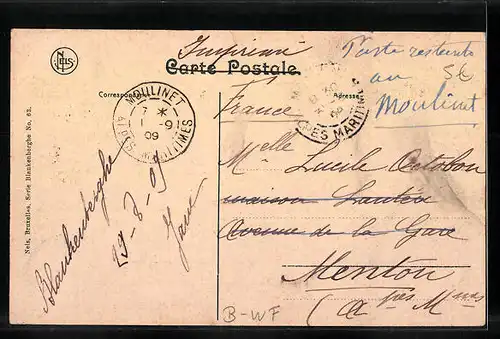 Imprimé
Carte Postale.
Poste restante
au
Moulinet
Correspondance
Adresse
MOULINET
7 * 9
09
ALPES MARITIMES
France
Melle Lucile Octobon
maison Lautier
Avenue de la Gare
Menton
(Alpes Mmes
Blankenberghe
Nels, Bruxelles, Serie Blankenberghe No. 62.
B-WF